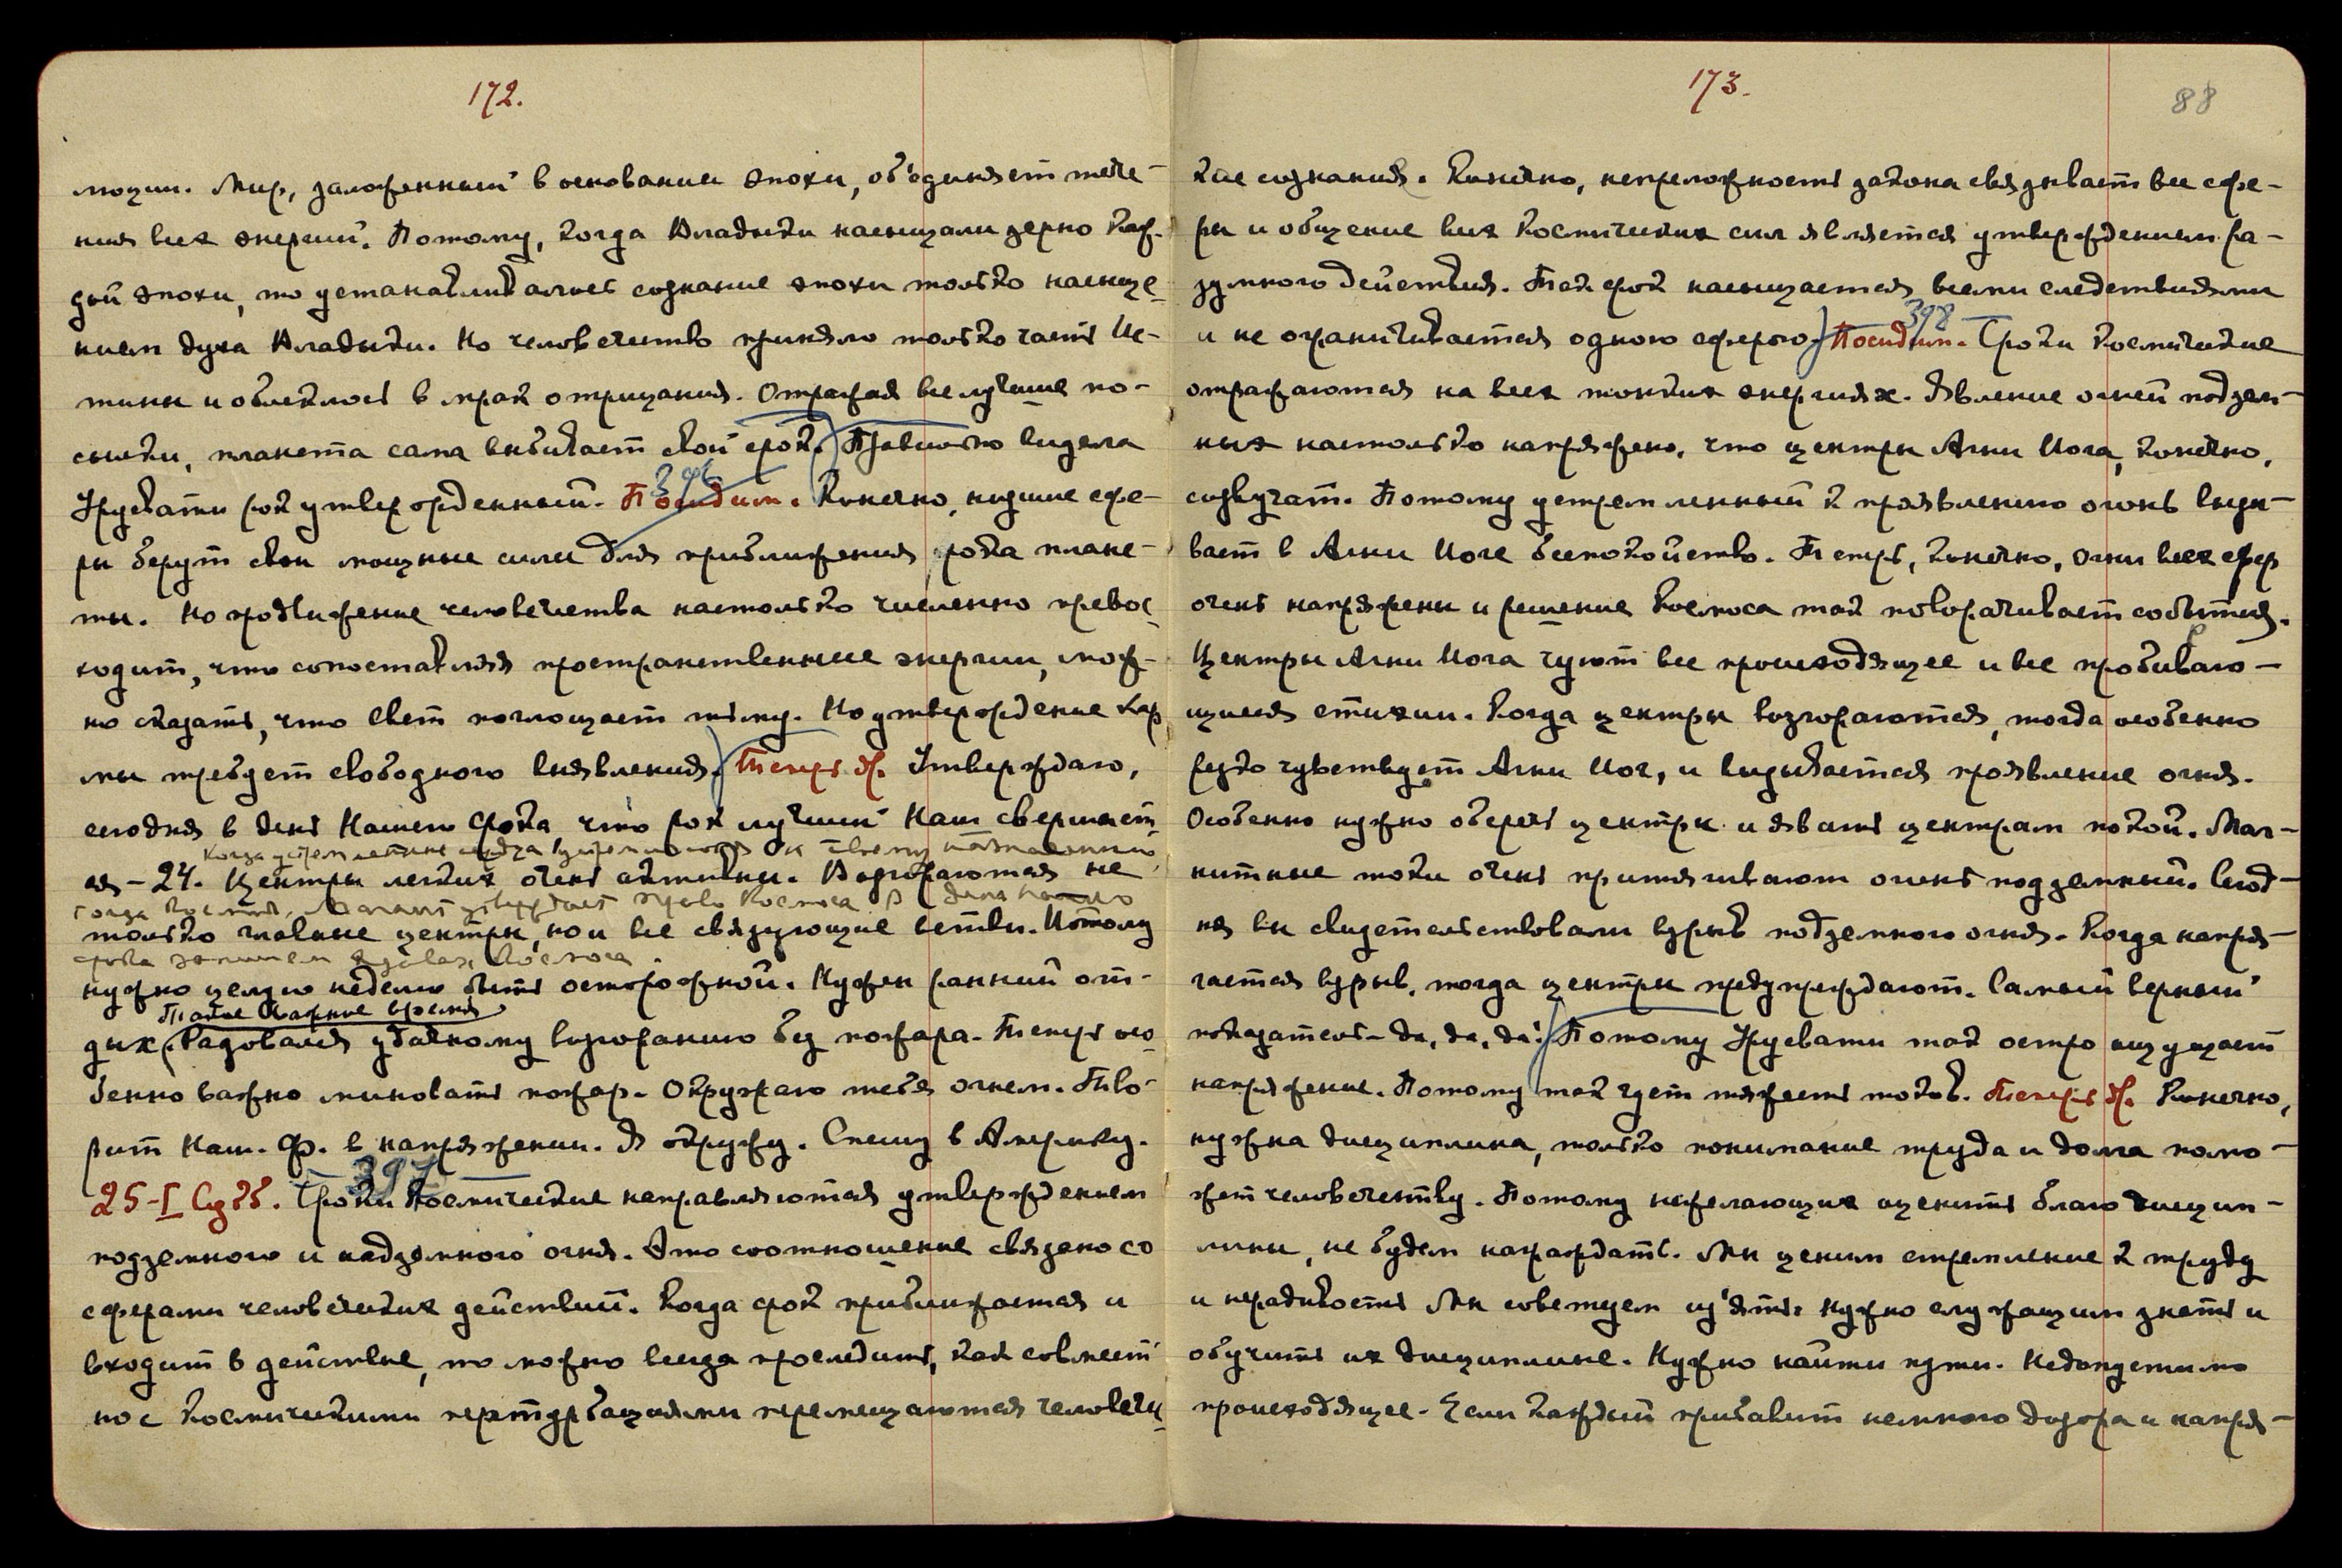 172.
люции. Мир, заложенный в основании эпохи, объединяет тече-
ния всех энергий. Потому, когда Владыки насыщали зерно каж-
дой эпохи, то устанавливалось сознание эпохи только насыще-
нием духа Владыки. Но человечество приняло только часть Ис-
тины и облеклось в мрак отрицания. Отражая все лучшие по-
сылки, планета сама выбивает свой срок. Правильно видела
Урусвати рок утвержденный. Посидим. Конечно, низшие сфе-
396
ры берут свои мощные силы для приближения рока плане-
ты. Но продвижение человечества настолько численно превос-
ходит, что сопоставляя пространственные энергии, мож-
но сказать, что свет поглощает тьму. Но утверждение кар
мы требует свободного выявления. Теперь др. Утверждаю,
сегодня в день Нашего Срока, что рок лучший Наш свершает-
Когда устремленные сердца устремляются к своему назначению
ся – 24. Центры легких очень активны. Возгораются не
тогда Космич. Магнит утверждает право Космоса. В день Нашего
только главные центры, но и все связующие ветви. Потому
срока запишем о делах Космоса.
нужно целую неделю быть осторожной. Нужен ранний от-
Такое важное время
дых. Радовался удачному возгоранию без пожара. Теперь осо
бенно важно миновать пожар. Окружаю тебя огнем. Тво-
рит Наш. Ф. в напряжении. Я окружу. Спешу в Америку.
397
25-I Суб. Сроки Космические направляются утверждением
подземного и надземного огня. Это соотношение связано со
сферами человеческих действий. Когда срок приближается и
входит в действие, то можно всегда проследить, как совмест
но с Космическими пертурбациями перемещаются человечес
173.
88
кие сознания. Конечно, непреложность закона связывает все сфе-
ры и общение всех Космических сил является утверждением ра-
зумного действия. Так срок насыщается всеми следствиями
398
и не ограничивается одною сферою. Посидим. Сроки Космические
отражаются на всех тонких энергиях. Явление огней подзем-
ных настолько напряжено, что центры Агни Йога, конечно,
созвучат. Потому устремленный к проявлению огонь вызы-
вает в Агни Йоге беспокойство. Теперь, конечно, огни всех сфер
очень напряжены и решение Космоса так поворачивает события.
Центры Агни Йога чуют все происходящее и все пробиваю-
щиеся стихии. Когда центры возгораются, тогда особенно
резко чувствует Агни Йог, и вызывается проявление огня.
Особенно нужно оберечь центры и давать центрам покой. Маг-
нитные токи очень притягивают огонь подземный. Сегод-
ня вы свидетельствовали взрыв подземного огня. Когда напря-
гается взрыв, тогда центры предупреждают. Самый верный
показатель – да, да, да! Потому Урусвати так остро ощущает
напряжение. Потому так чует тяжесть токов. Теперь др. Конечно,
нужна дисциплина, только понимание труда и долга помо-
жет человечеству. Потому нежелающих оценить благо дисцип-
лины, не будем награждать. Мы ценим стремление к труду
и нерадивость Мы советуем изъять. Нужно служащим знать и
обучить их дисциплине. Нужно найти пути. Недопустимо
происходящее. Если каждый прибавит немного дозора и напря-